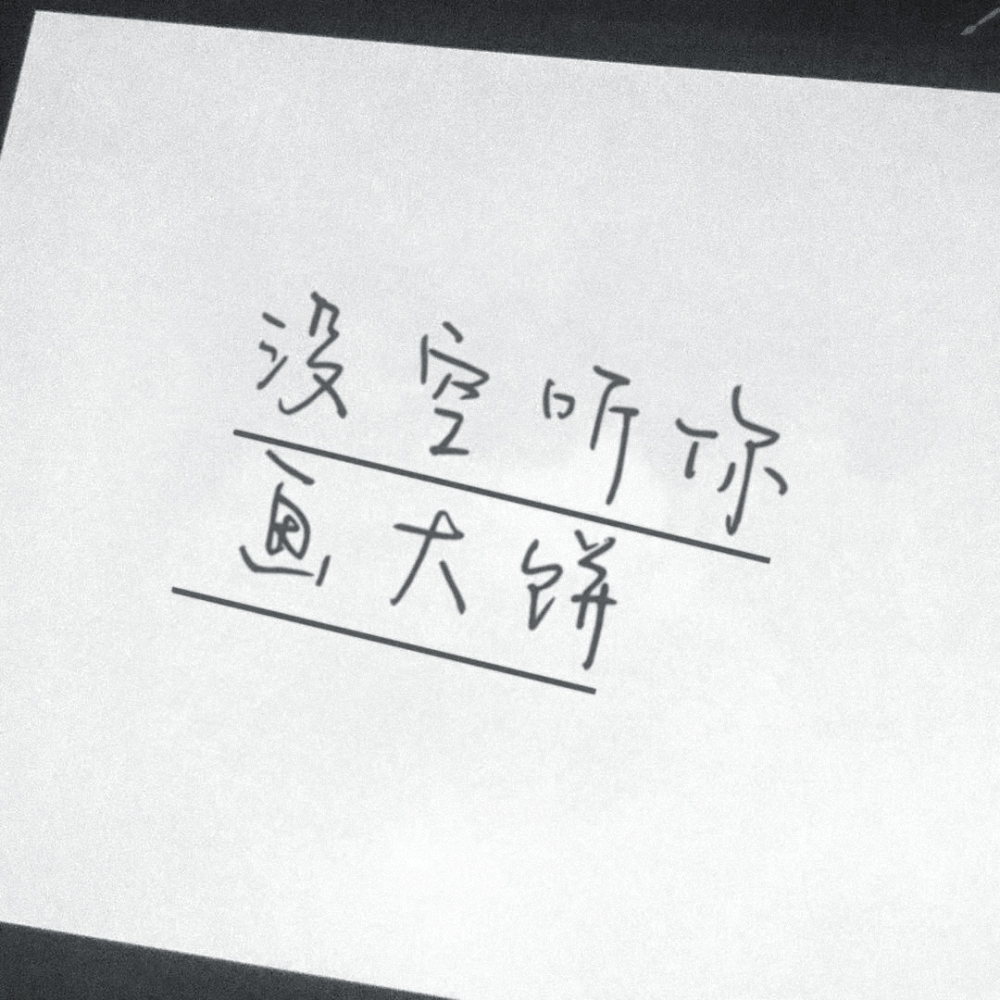 没空听你
画大饼